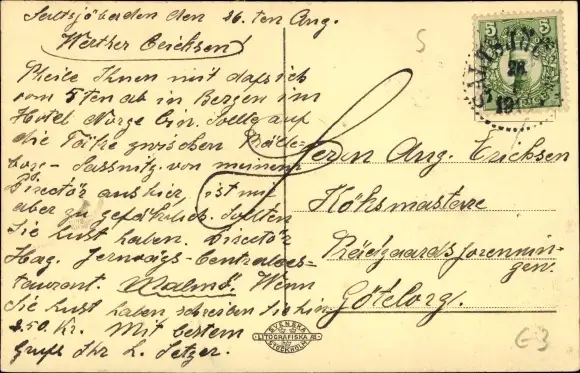 Saltsjöbaden den 26. ten Aug.
Werther Ericksen!
Theile Ihnen mit dass ich
vom 5 ten ab in Bergen im
Hotel Norge bin. Sollte auf
die zwischen
- Sassnitz. von meinem
Director aus hier, ist mir
aber zu gefährlich. Sollten
Sie Lust haben. Director
Hag. Jernvägs-Centralres-
taurant. Malmö. Wenn
Sie Lust haben, schreiben Sie hin
250. Kr. Mit bestem
Gruß Ihr L. Setzer.
Herrn Aug. Ericksen
Köksmästare
gen.
Göteborg.
5
5 5
SALTSJÖBADEN
26
SVENSKA
LITOGRAFISKA AB
STOCKHOLM
G3